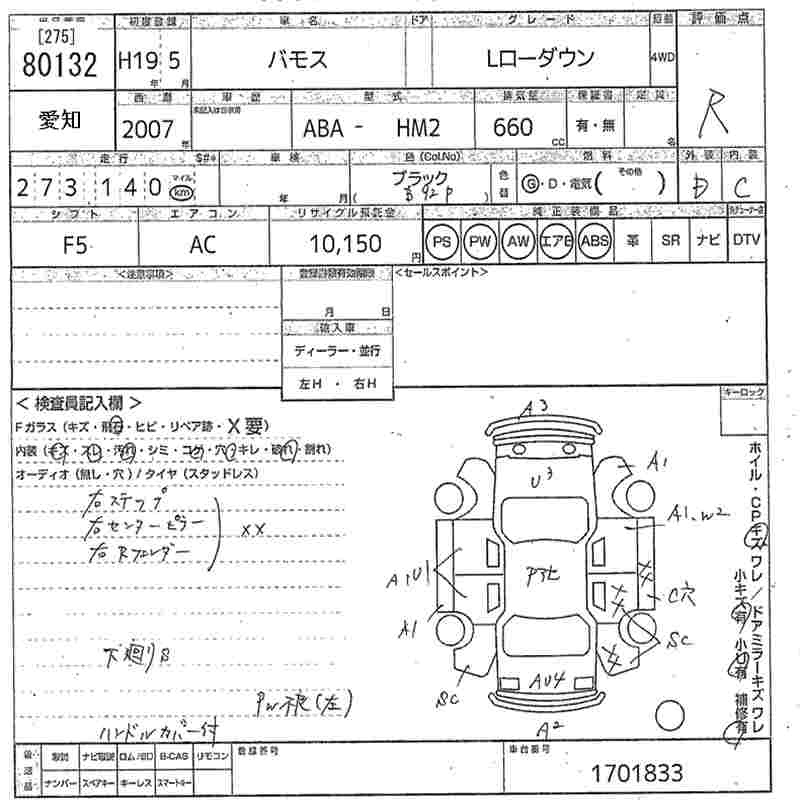 初度登録 車名 ドア グレード 評価点
[275]
80132 H19 5 バモス Lローダウン 4WD
年 月
R
愛知 西暦 車歴 型式 排気量 保証書 定員
2007 ABA - HM2 660 有・無
年 cc 名
走行 車検 色(Col.No) 燃料 外装 内装
273140 マイル km 年 月 ブラック B92P 色替 G・D・電気( その他 ) D C
シフト エアコン リサイクル預託金 純正装備品
F5 AC 10,150 円 PS PW AW エアB ABS 革 SR ナビ DTV
<注意事項> <セールスポイント>
月 日
輸入車
ディーラー・並行
左H ・ 右H
<検査員記入欄> キーロック
Fガラス(キズ・飛石・ヒビ・リペア跡・X要)
内装(キズ・スレ・汚れ・シミ・コゲ・穴・キレ・破れ・割れ)
オーディオ(無し・穴)/タイヤ(スタッドレス)
右ステップ
右センターピラー XX
右Rフェンダー
下廻りS
PW不良(左)
ハンドルカバー付
A3
U3
A1
A1.W2
A1U1
A1
C穴
SC
SC
AU4
A2
ホイル・CPキズワレ/ドアミラーキズワレ
小キズ有/小凹有 補修有
後送品 取説 ナビ取説 ロム/SD B-CAS リモコン 登録番号 車台番号
ナンバー スペアキー キーレス スマートキー
1701833